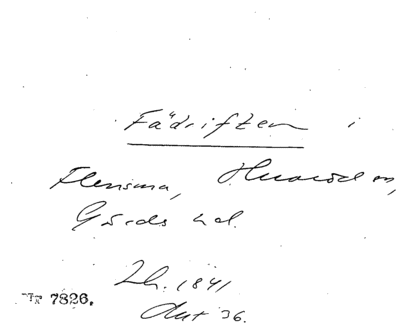 Fädriften i
Flensma, Huaröd sn,
Gärds hd.
Lh. 1841
Aut 36.
Nr 7826.